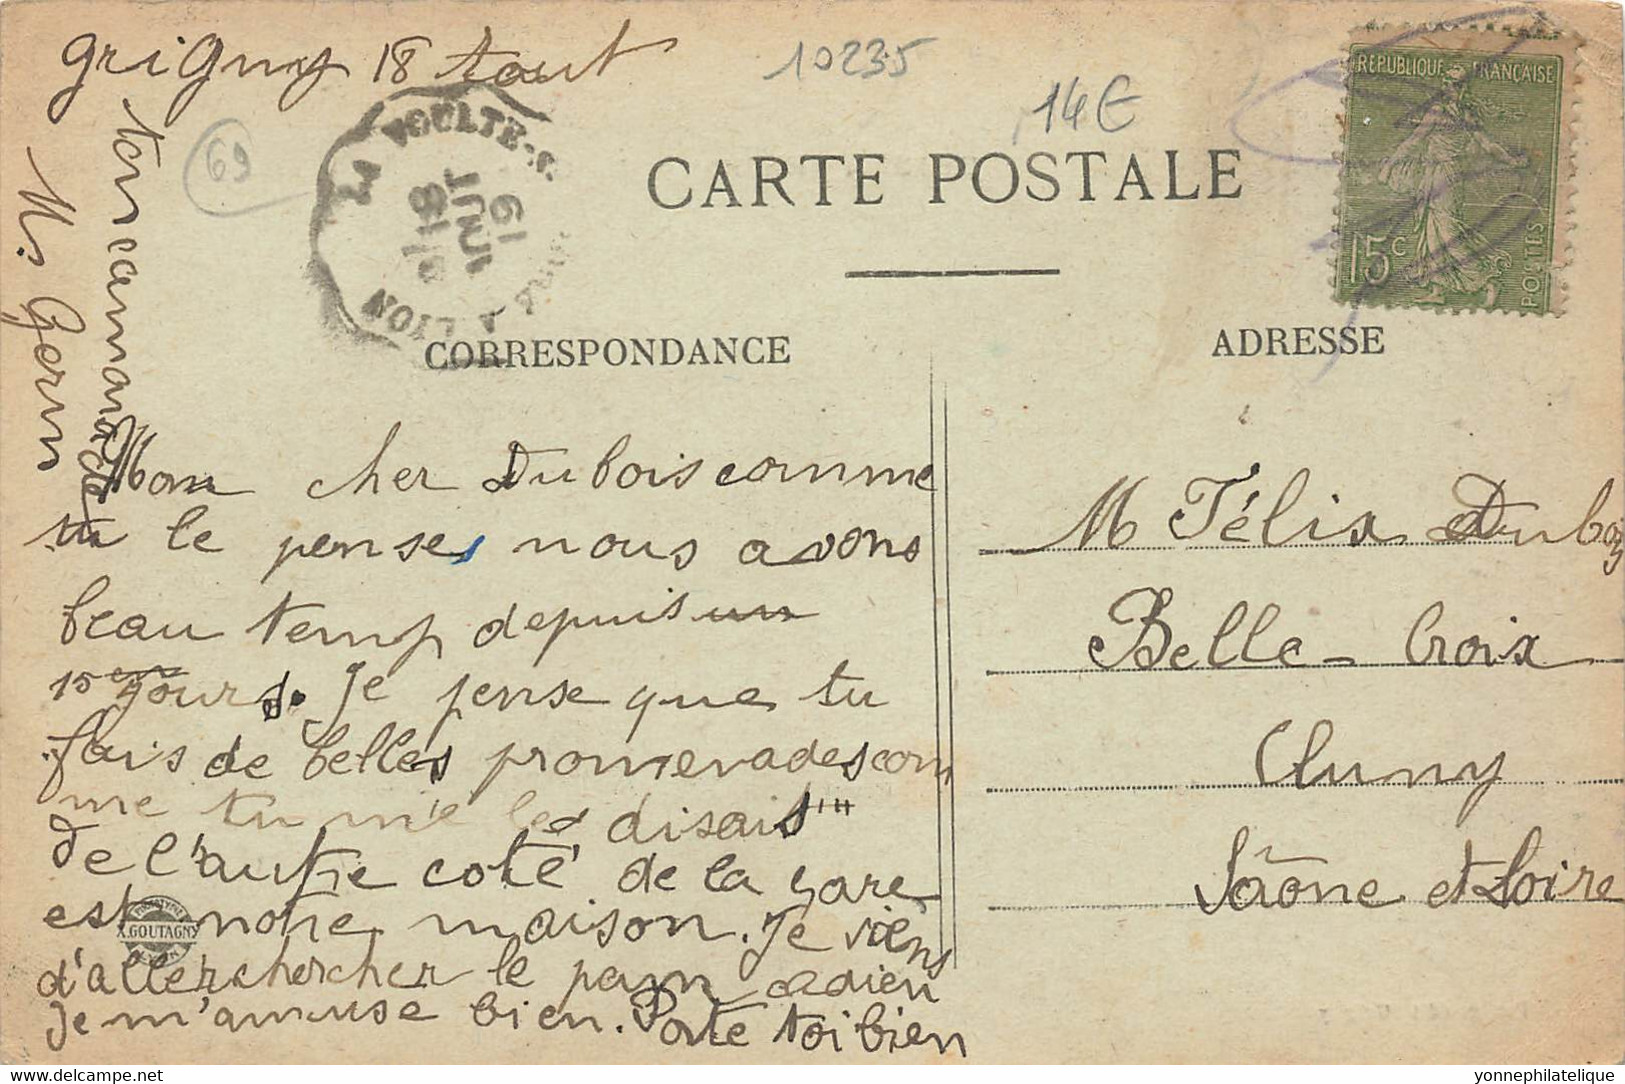 Grigny 18 aout
10235
14€
69
LA VOULTE-S.
LYON
19
CARTE POSTALE
REPUBLIQUE FRANÇAISE
15c
POSTES
CORRESPONDANCE
ADRESSE
ton camarade
M. Gerin
Mon cher Dubois comme
tu le penses nous avons
beau temp depuis un
15 jours. Je pense que tu
fais de belles promenades com
me tu me les disais
De l'autre coté de la gare
est notre maison. Je viens
d'aller chercher le pain adieu
Je m'amuse bien. Porte toi bien
M Félix Dubois
Belle-Croix
Cluny
Saône et Loire
X.GOUTAGNY
delcampe.net
yonnephilatelique